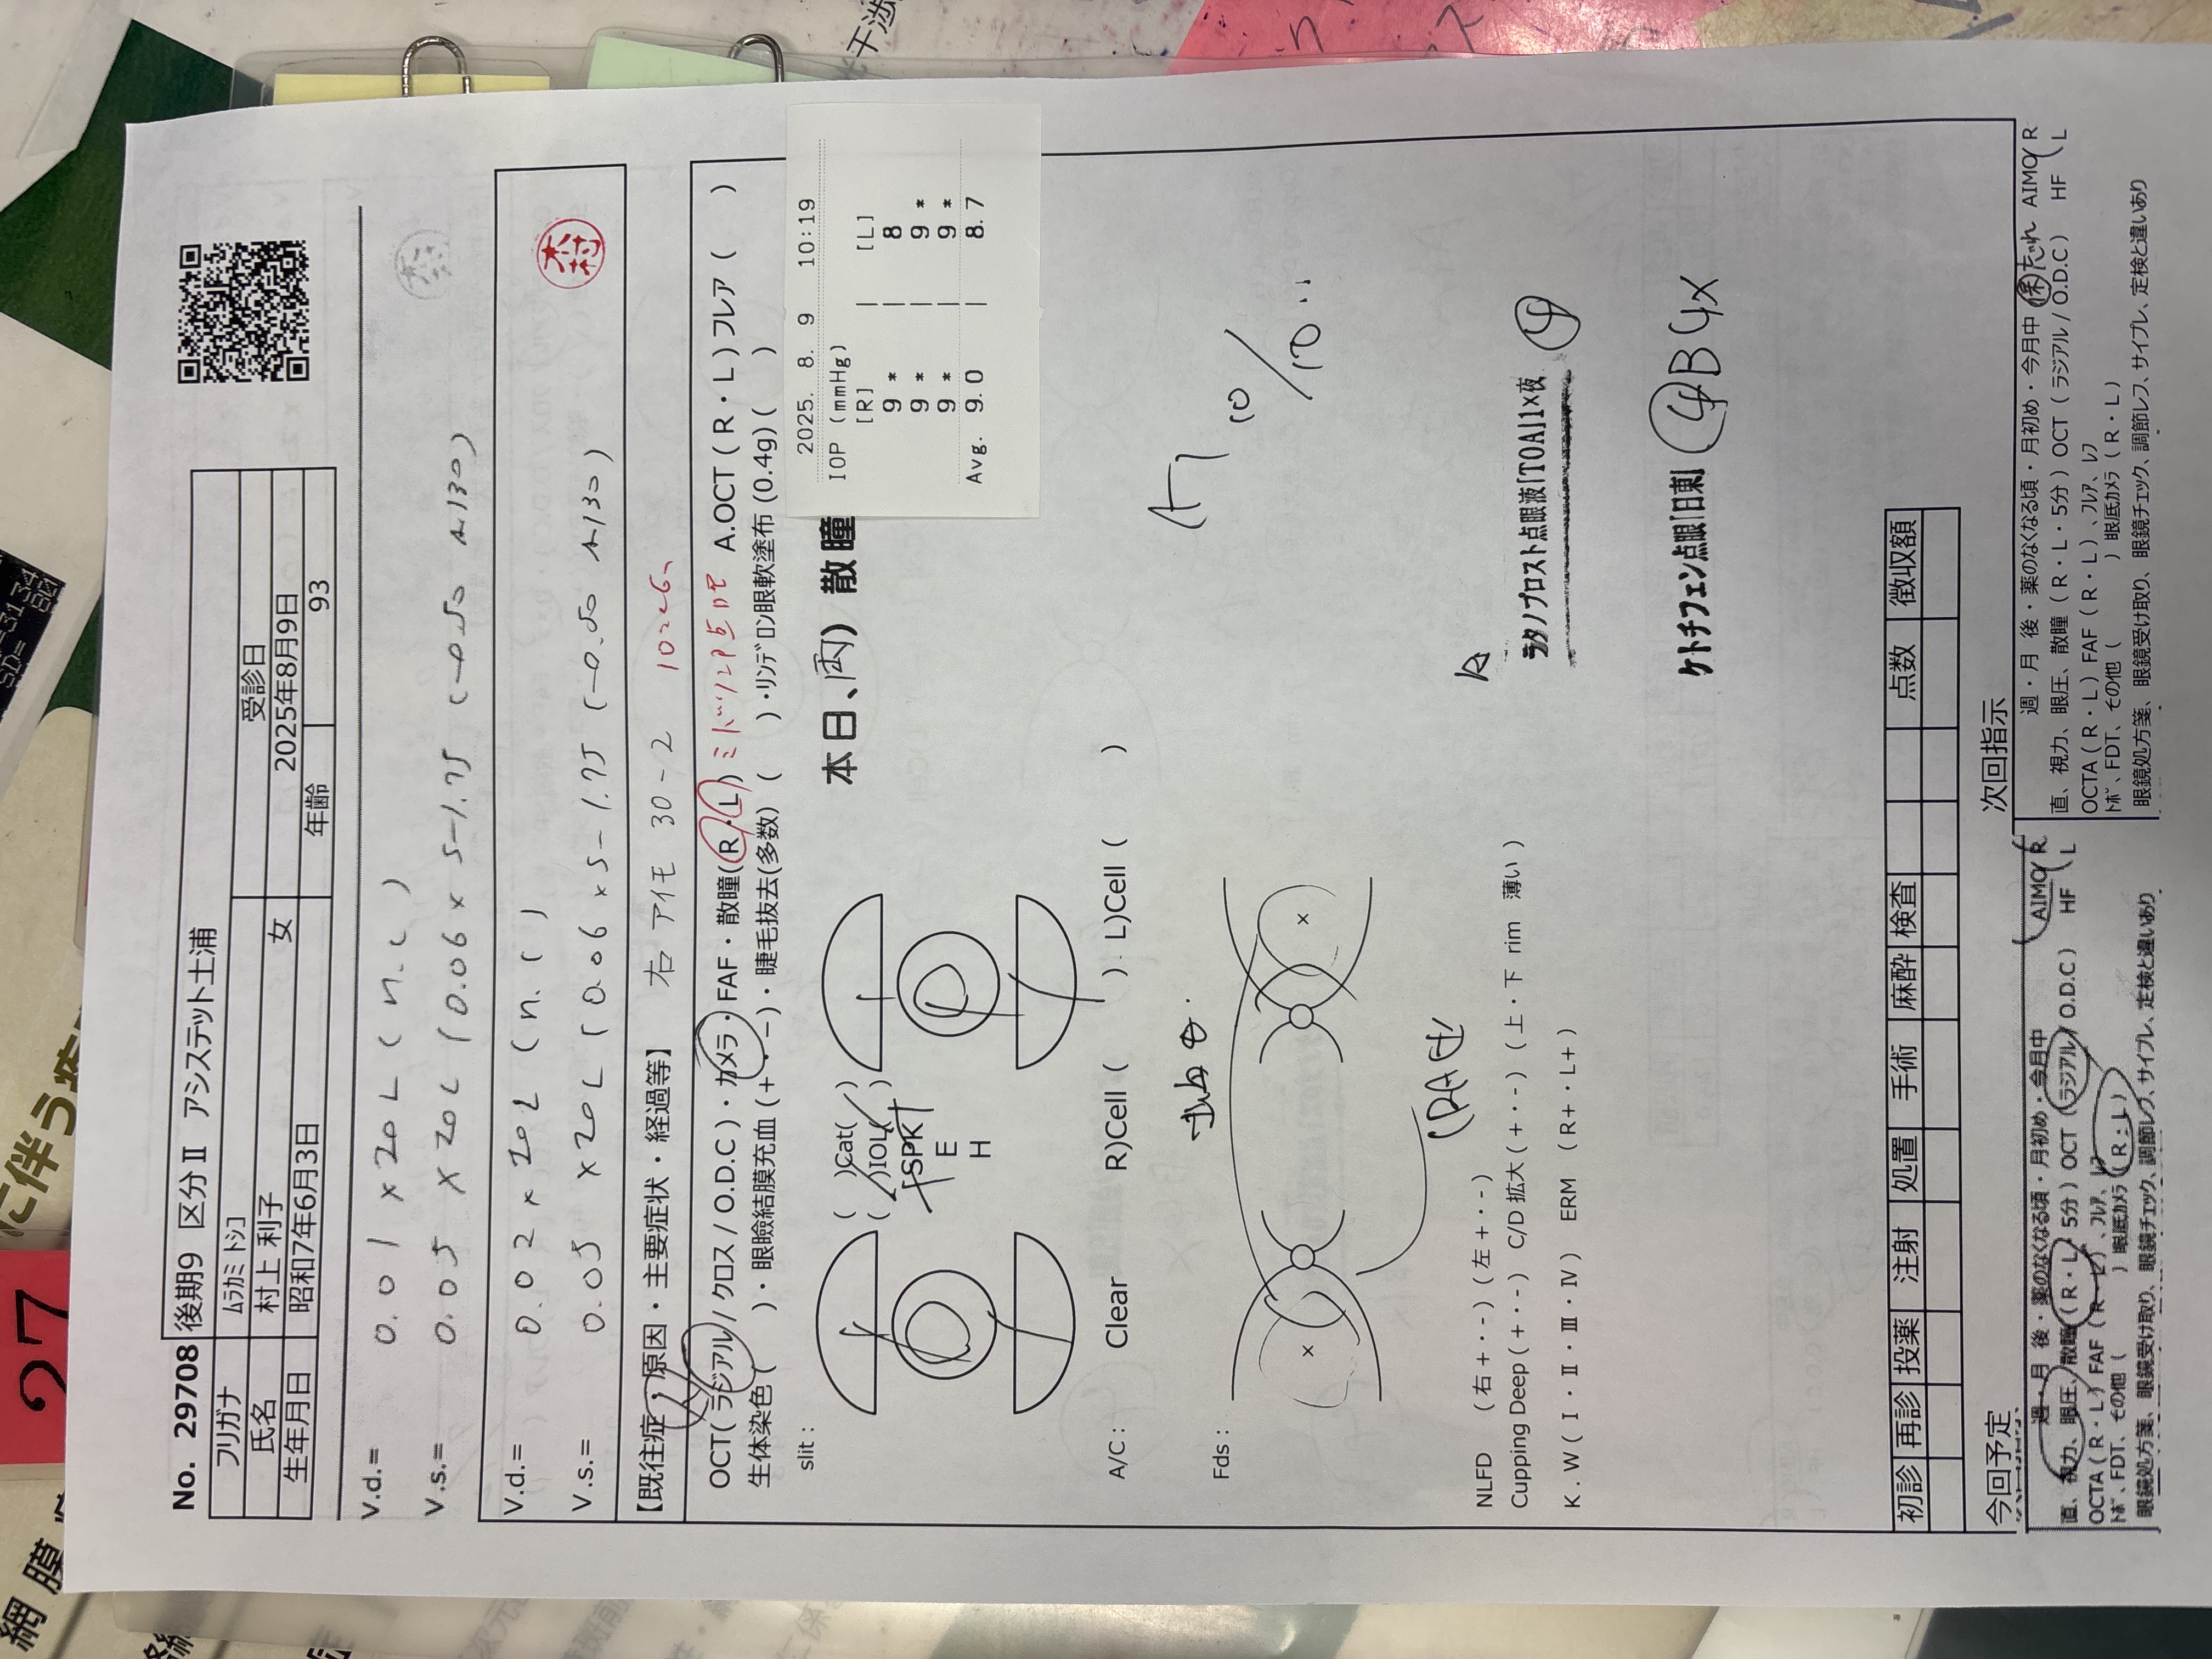 網膜
27
に伴う疾
SD=
No. 29708 後期9 区分Ⅱ アシステット土浦
フリガナ ムラカミ トシコ 受診日
氏名 村上 利子 女 2025年8月9日
生年月日 昭和7年6月3日 年齢 93
V.d.= 0.01 × 20L (n.c)
V.s.= 0.05 × 20L (0.06 × S-1.75 (-0.50 A130)
木村
V.d.= 0.02 × 20L (n.c)
V.s.= 0.05 × 20L (0.06 × S-1.75 (-0.50 A130)
木村
【既往症・原因・主要症状・経過等】 右 アイモ 30-2
OCT( ラジアル / クロス / O.D.C )・カメラ・FAF・散瞳(R・L) ミドリンP点眼 A.OCT ( R・L ) フレア ( )
生体染色 ( )・眼瞼結膜充血 (+・−)・睫毛抜去(多数) ( )・リンデロン眼軟塗布 (0.4g) ( )
slit :
( )Cat( )
( )IOL( )
SPK
E
H
本日、両) 散瞳
2025. 8. 9 10:19
IOP (mmHg)
[R] | [L]
9 * | 8
9 * | 9 *
9 * | 9 *
Avg. 9.0 | 8.7
A/C : Clear R)Cell ( ) . L)Cell ( )
Fds :
10/10
NLFD (右 +・-) (左 +・-)
Cupping Deep (+・-) C/D 拡大 (+・-) (上・下 rim 薄い )
K . W ( Ⅰ・Ⅱ・Ⅲ・Ⅳ) ERM (R+・L+)
ラタノプロスト点眼液「TOA」1×夜
ケトチフェン点眼「日東」 B 4×
初診 再診 投薬 注射 処置 手術 麻酔 検査 点数 徴収額
今回予定
週・月 後・薬のなくなる頃・月初め・今月中 AIMO R
直、視力、眼圧、散瞳 ( R・L・5分 ) OCT ( ラジアル / O.D.C ) HF L
OCTA ( R・L ) FAF ( R・L ) 、フレア、レフ
トポ、FDT、その他 ( ) 眼底カメラ ( R・L )
眼鏡処方箋、眼鏡受け取り、眼鏡チェック、調節レフ、サイプレ、定検と違いあり
次回指示
週・月 後・薬のなくなる頃・月初め・今月中 AIMO R
直、視力、眼圧、散瞳 ( R・L・5分 ) OCT ( ラジアル / O.D.C ) HF L
OCTA ( R・L ) FAF ( R・L ) 、フレア、レフ
トポ、FDT、その他 ( ) 眼底カメラ ( R・L )
眼鏡処方箋、眼鏡受け取り、眼鏡チェック、調節レフ、サイプレ、定検と違いあり